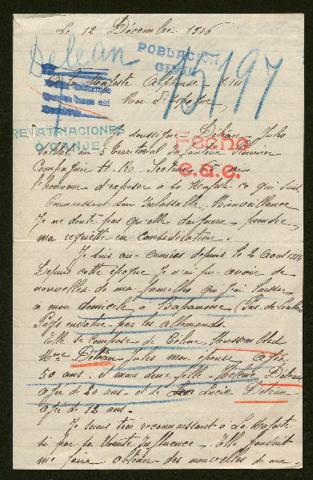 Le 12 Décembre 1916
Delean
POBLACION
CIVIL
13/197
Majesté Alphonse XIII
Roi d'Espagne
REPATRIACIONES
soussigné Delean Jules
Territorial
Fecho
e.a.e.
Compagnie H. R. Secteur
l'honneur d'exposer à sa Majesté ce qui suit
Connaissant son Inlassable Bienveillance
Je ne doute pas qu'elle daignera prendre
ma requête en considération.
Je suis aux armées depuis le 2 Août 1914
Depuis cette époque je n'ai pu avoir de
nouvelles de ma famille que j'ai laissée
à mon domicile à Bapaume (Pas de Calais)
Pays envahie par les allemands.
Elle se compose de
Mme Delean Jules mon épouse agée
50 ans. et mes deux fille Delean
agée de 20 ans et de Lucie Delean
agée de 12 ans.
Je serais très reconnaissant à Sa Majesté
si par sa Haute Influence. Elle pouvait
me faire obtenir des nouvelles de ma